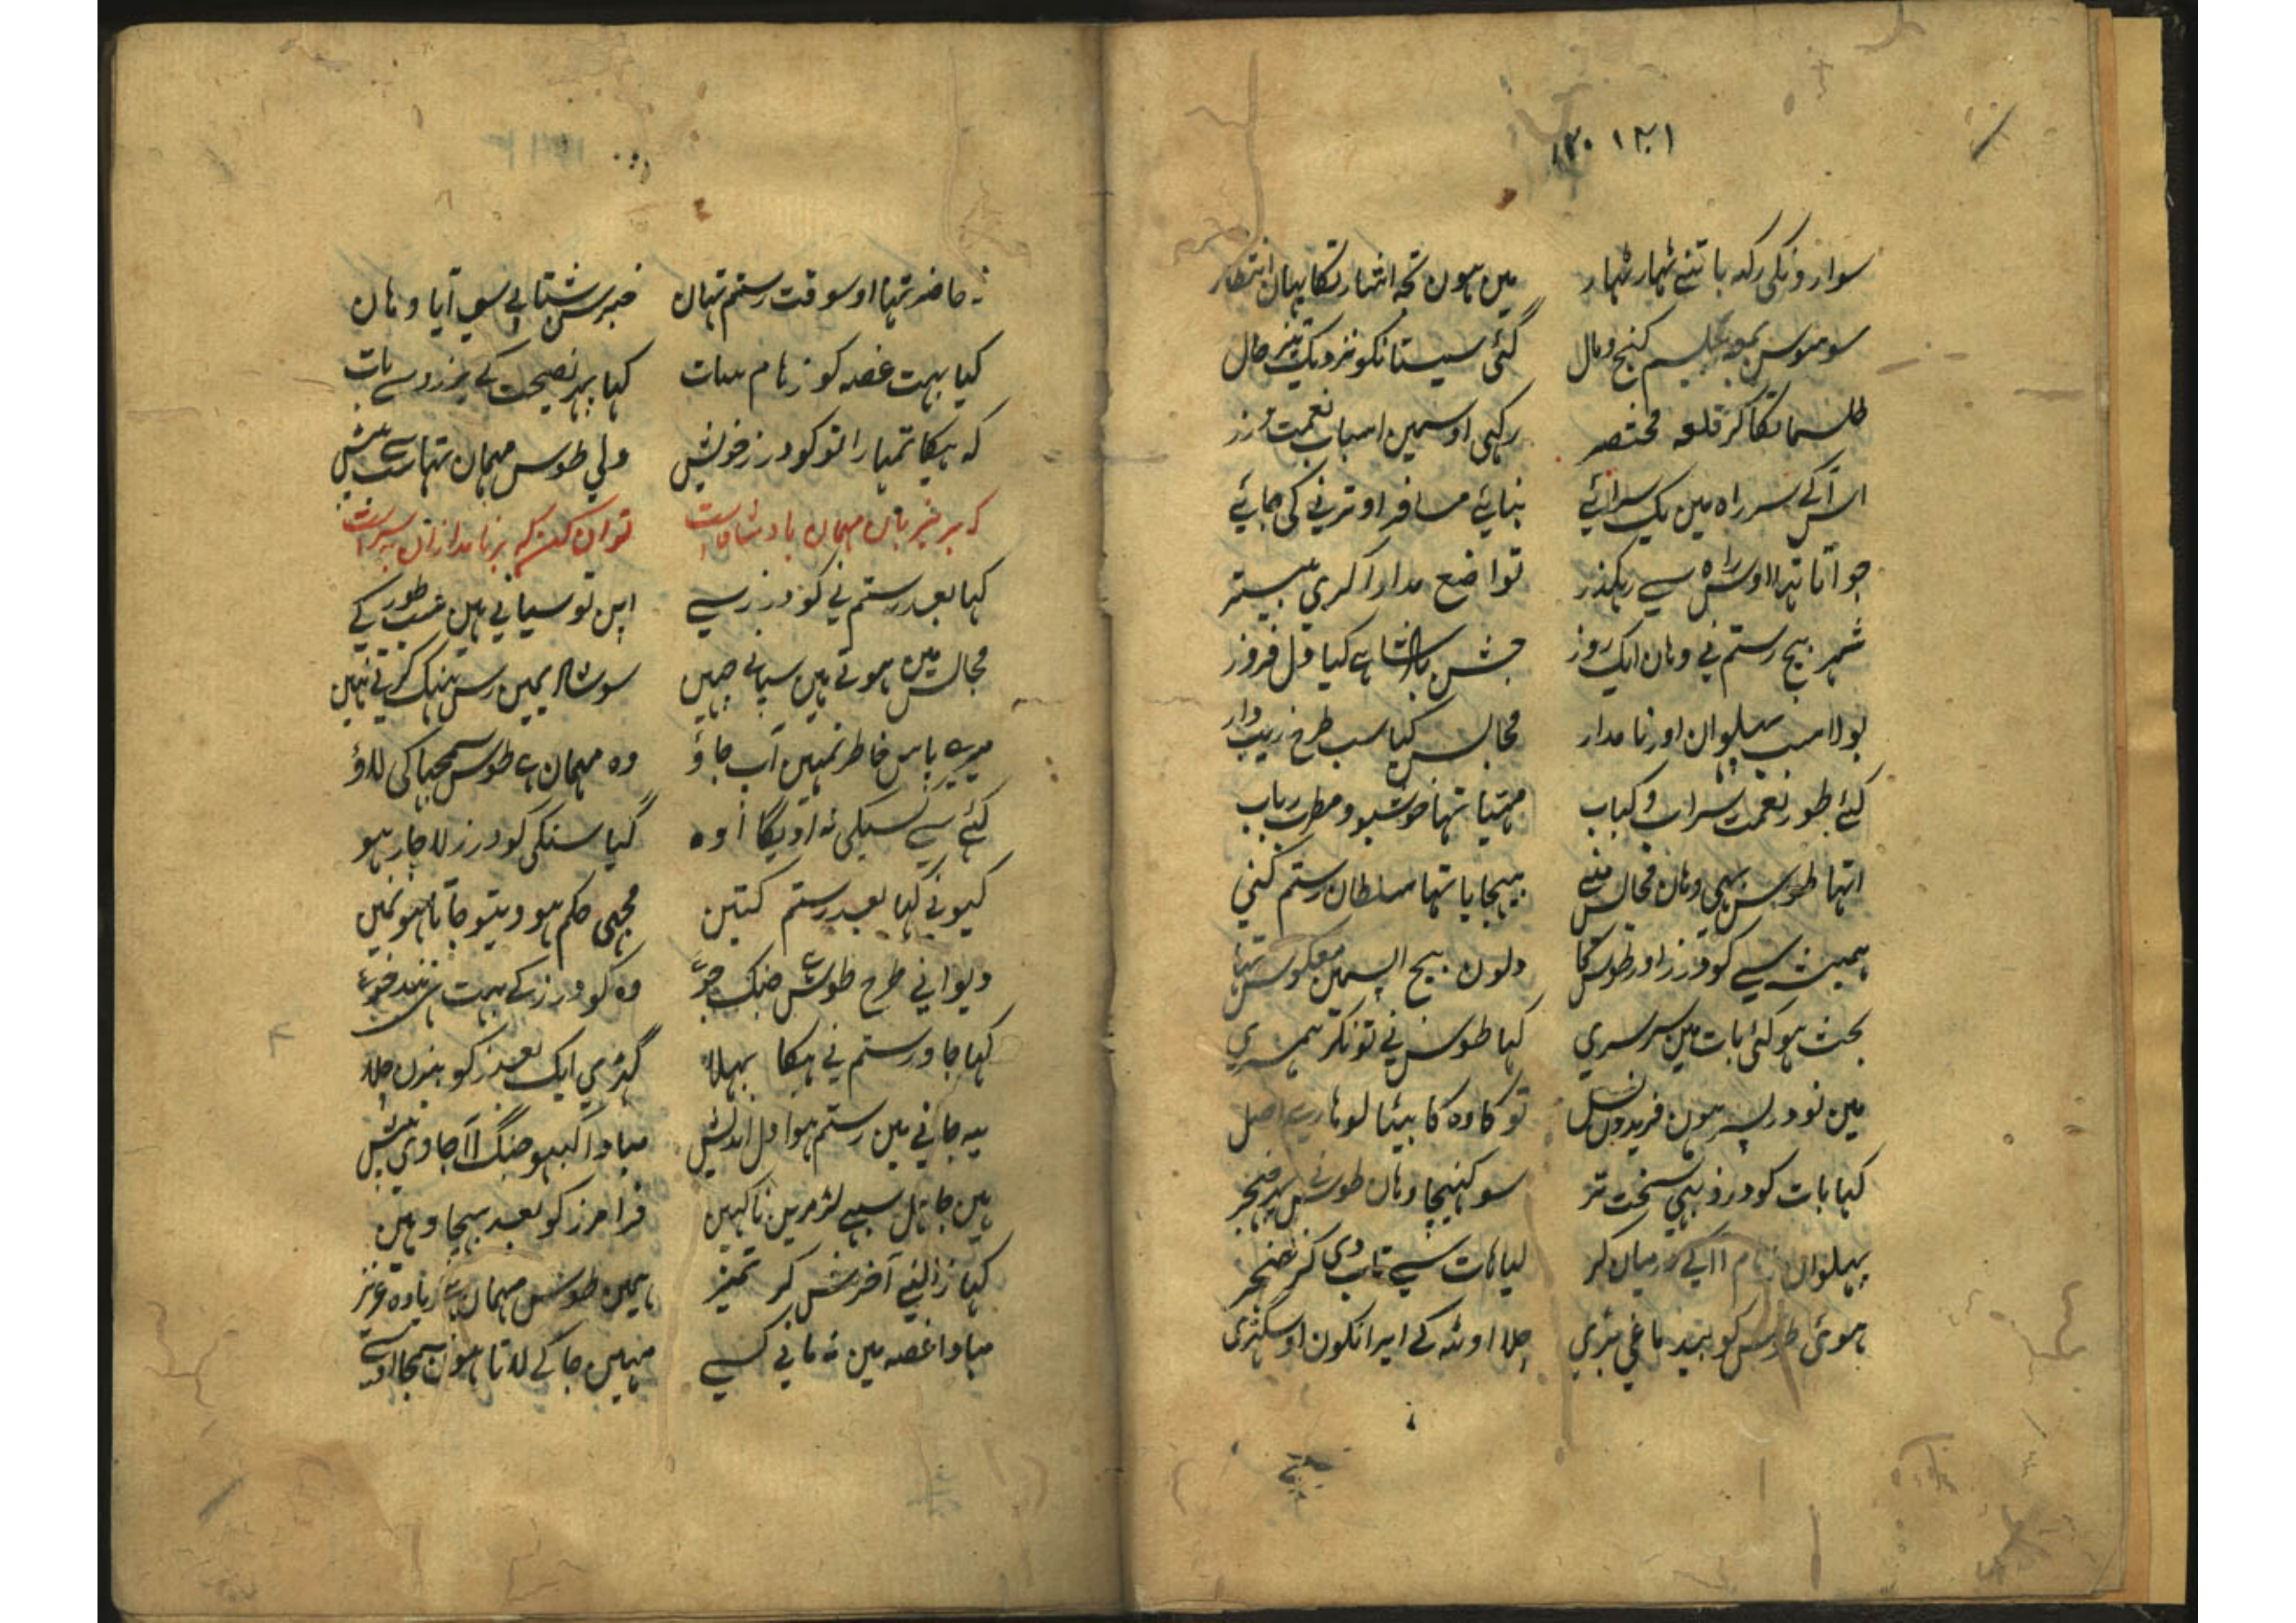 ۱۳۰ ۱۳۱
سوارونکی رکہ باتنے ٹہار ٹہار میں ہون تجہ انتہار تکا یہان انتظار
سو منوس کنج ومال گئی سیستانکو نزدیک حال
طلسماتکا کر قلعہ مختصر رکہی اوسمین اسباب نعمت زر
اس آکے سر راہ مین یک سرائے بنائے مسافر اوترنے کی جائے
جو آتا تہا اوس راہ سے رہکذر تواضع مدارا کری بیشتر
شہر بیچ رستم نے وہان ایک روز جشن بادشاہے کیا دل فروز
بولا سب پہلوان اور نامدار مجالس کیا سب طرح زیب وار
کئے طور نعمت شراب و کباب مہیا تہا خوشبو و مطرب رباب
اتہا طوس بہی وہان مجالس منے بہیجایا تہا سلطان رستم کنی
ہمیشہ سے کودرز اور طوس کا دلون بیچ اپسمین معکوس تہا
بحث ہو گئی بات مین سرسری کہا طوس نے تو نکر ہمسری
مین نودر پسر ہون فریدون نسل تو کاوہ کا بیٹا لوہارے اصل
کہا بات کودرز بہی سخت تر سو کہنیچا وہان طوس نے پہر خنجر
پہلوان درمیان کر لیا ہات سے تاب دی کر خنجر
ہوئی طوس کو بہید ماغی بڑی چلا اوٹہ کے ایرانکون اوسگہڑی
نہ حاضر تہا اوسوقت رستم تہان خبر سن شتابی سو آیا وہان
کیا بہت غصہ کو رہام سات کہا پہر نصیحت کے کودرز سے بات
کہ ہیکا تمہارا تو کودرز خویش ولی طوس مہمان تہا سب سے بیش
کہ بر میزبان مہمان بادشاست توان کن کہ بر نامداران سراست
کہا بعد رستم نے کودرز سے اپن تو سیانے ہین سب طور کے
مجالس مین ہوتے ہین سیانے جہین سو شاہ ہمین رس تنبک کرتے نہین
میرے پاس خاطر تمہین اب جاؤ وہ مہمان ہے طوس سمجہا کی لاؤ
کئے سے کسیکی نہ آویگا اوہ گیا سنکی کودرز لاچار ہو
کیونے کہا بعد رستم کتین مجہی حکم ہو ویتو جاتا ہو نمین
دیوانے طرح طوس ہے جنگ جو وہ کودرز کے بہت ہی تند خو
کہا جاو رستم نے ہیکا بہلا گہڑی ایک بعد کو بہون چلا
یہ جانے مین رستم ہوا دل اندیش مبادا کبہو جنگ آ جاوی پیش
ہین جاہل سبہی لڑ مرین نا کہین فرامرز کو بعد بہیجا وہین
کہا زالنے آخرش کر تمیز ہمین طوس مہمان ہے زیادہ عزیز
مبادا غصہ مین نہ مانے کسے مہین جا کے لاتا ہون سمجہا اوسے